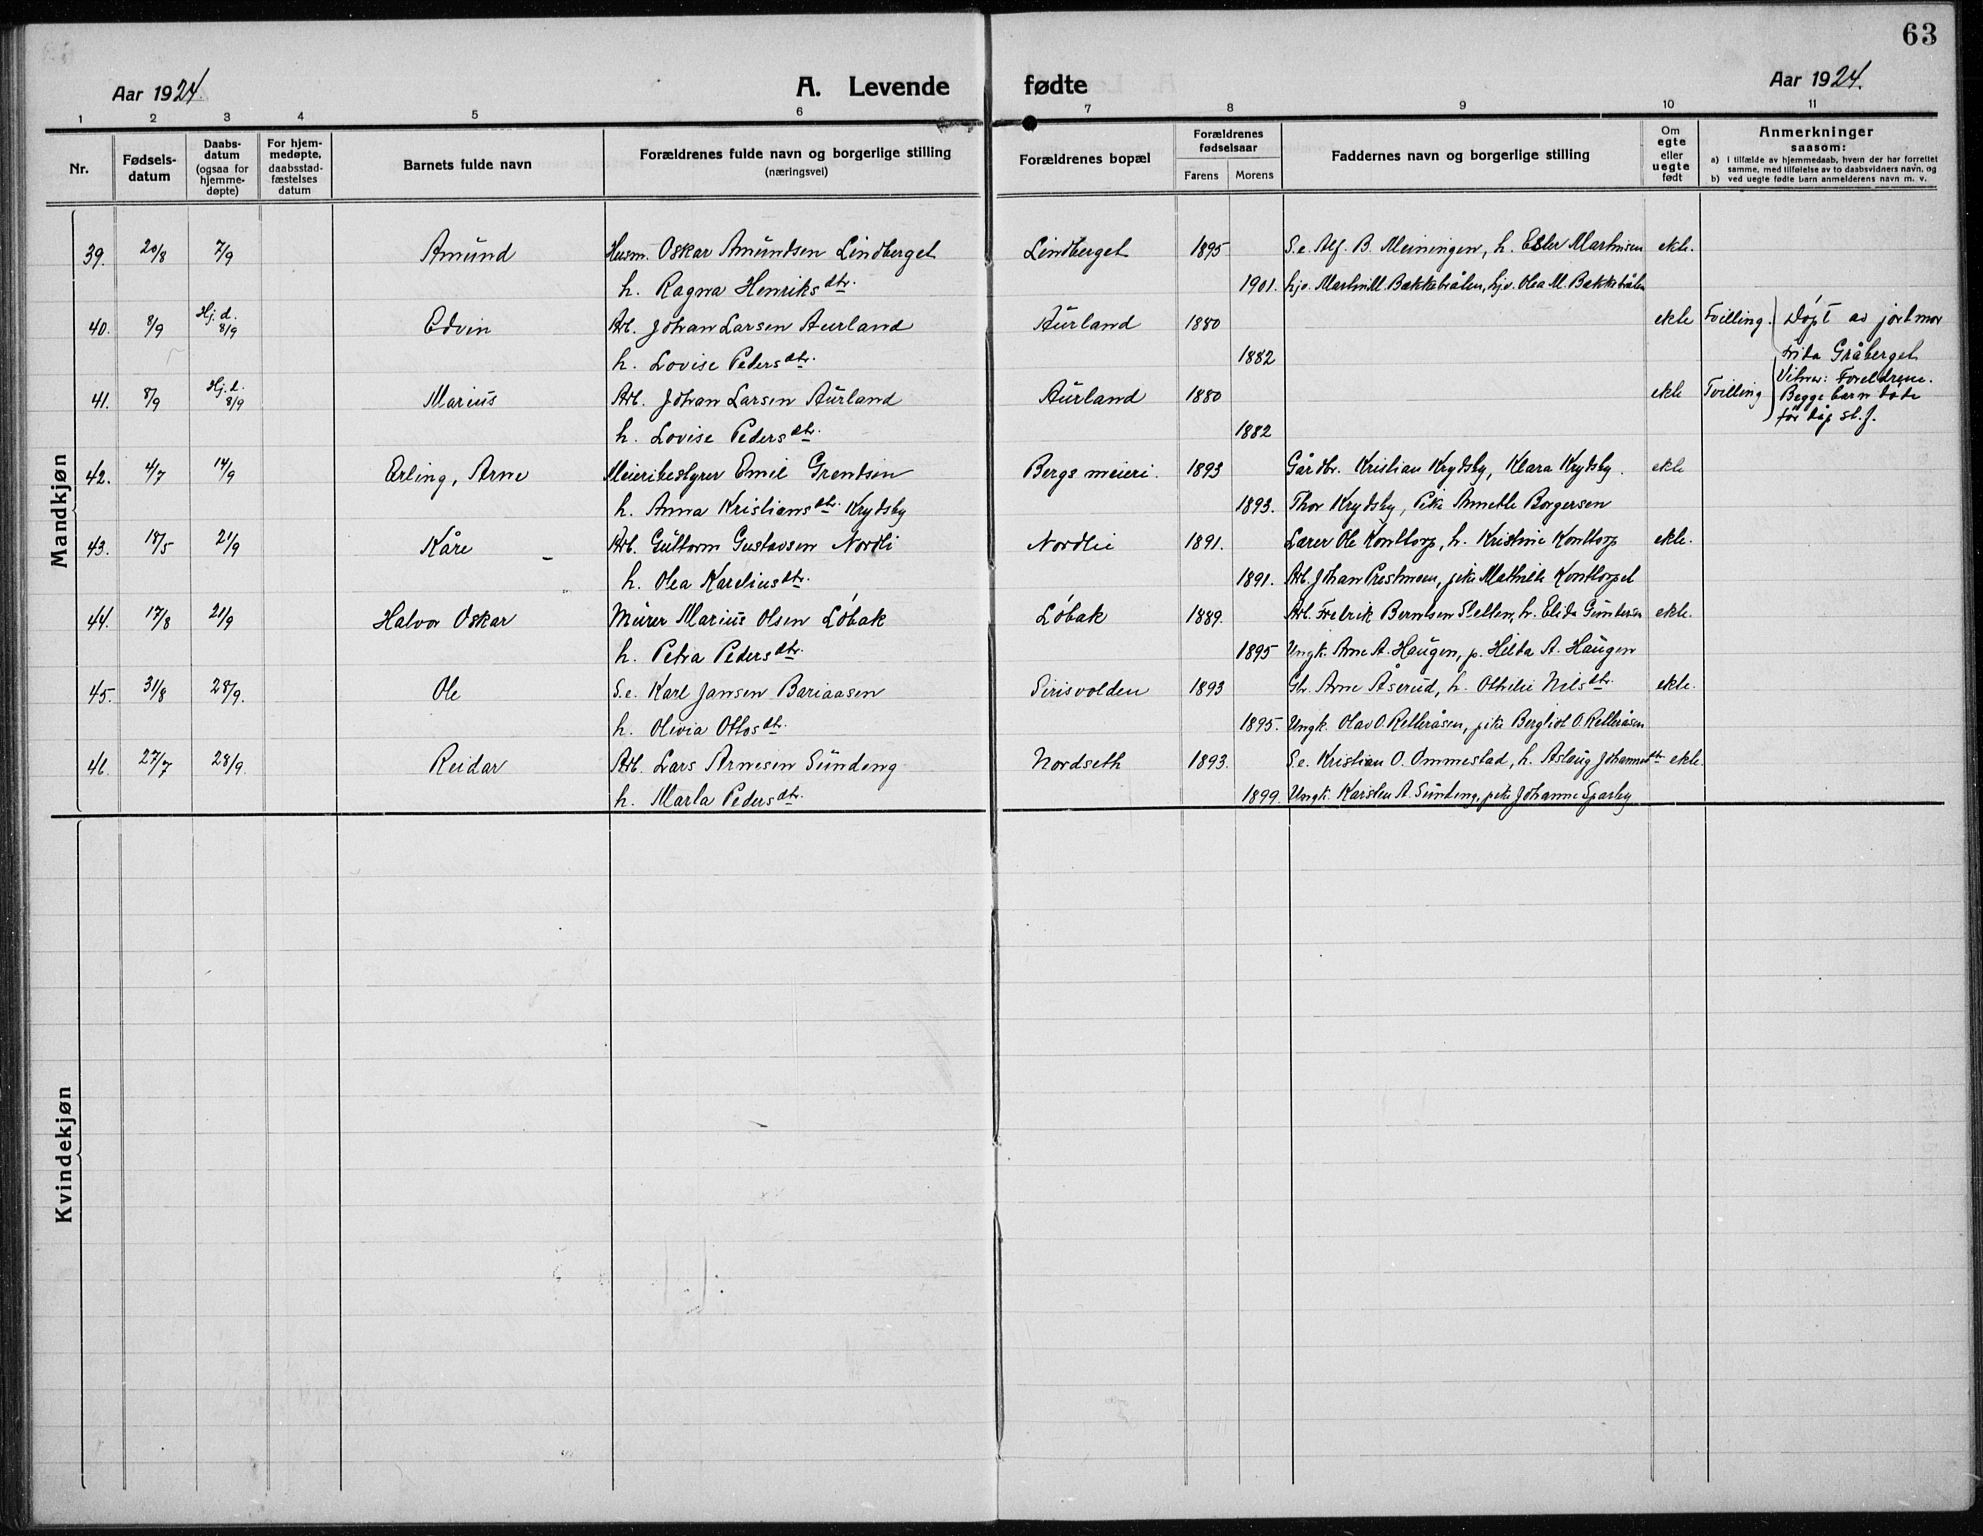 63
Aar 1924. A. Levende fødte Aar 1924.
1 2 3 4 5 6 7 8 9 10 11
Nr. Fødsels-datum Daabs-datum (ogsaa for hjemme-døpte) For hjem-medøpte, daabsstad-fæstelses datum Barnets fulde navn Forældrenes fulde navn og borgerlige stilling (næringsvei) Forældrenes bopæl Forældrenes fødselsaar Farens Morens Faddernes navn og borgerlige stilling Om egte eller uegte født Anmerkninger saasom:
a) I tilfælde av hjemmedaab, hvem der har forrettet samme, med tilføielse av to daabsvidners navn, og
b) ved uegte fødte barn anmelderens navn m. v.
Mandkjøn
39. 20/8 7/9 Amund Husm. Oskar Amundsen Lindberget Lindberget 1895 S.e. Alf. B. Meiningen, h. Ester Martinsen ekte.
h. Ragna Henriksdtr. 1901. hjv. Martin M. Bakkebråten, hjv. Olea M. Bakkebråten
40. 8/9 Hj. d. 8/9 Edvin Arb. Johan Larsen Aurland Aurland 1880 ekte Tvilling. Døpt av jordmor
h. Lovise Pedersdtr. 1882 Frida Gråberget
41. 8/9 Hj. d. 8/9 Marius Arb. Johan Larsen Aurland Aurland 1880 ekte Tvilling Vitner: Foreldrene. Begge barn døde
h. Lovise Pedersdtr. 1882 før dåp st. f.
42. 4/7 14/9 Erling, Arne Meieribestyrer Emil Grendsen Bergs meieri. 1893 Gårdbr. Kristian Krydsby, Klara Krydsby. ekte
h. Anna Kristiansdtr. Krydsby 1893. Thor Krydsby, Pike Annette Borgersen
43. 18/5 21/9 Kåre Arb. Guttorm Gustavsen Nordli Nordlie 1891. Lærer Ole Konttorp, h. Kristine Konttorp ekte.
h. Olea Kareliusdtr. 1891. Arb. Johan Prestmoen, pike Mathilde Konttorpet
44. 17/8 21/9 Halvor Oskar Murer Marius Olsen Løbak Løbak 1889. Arb. Fredrik Berntsen Sletten, h. Elida Guntersen ekte.
h. Petra Pedersdtr. 1895 Ungk. Arne A. Haugen, p. Hilda A. Haugen
45. 31/8 28/9. Ole S.e. Karl Jansen Bariaasen Sirisvolden 1893 Gbr. Arne Åserud, h. Othelie Nilsdtr. ekte.
h. Olivia Ottosdtr. 1895. Ungk. Olav O. Retteråsen, pike Bergliot O. Retteråsen
46. 27/7 28/9. Reidar Arb. Lars Arnesen Sundeng Nordseth 1893. S.e. Kristian O. Ommestad, h. Aslaug Johannesdtr ekte.
h. Marta Pedersdtr. 1899. Ungk. Karsten A. Sundeng, pike Johanne Sparby
Kvindekjøn